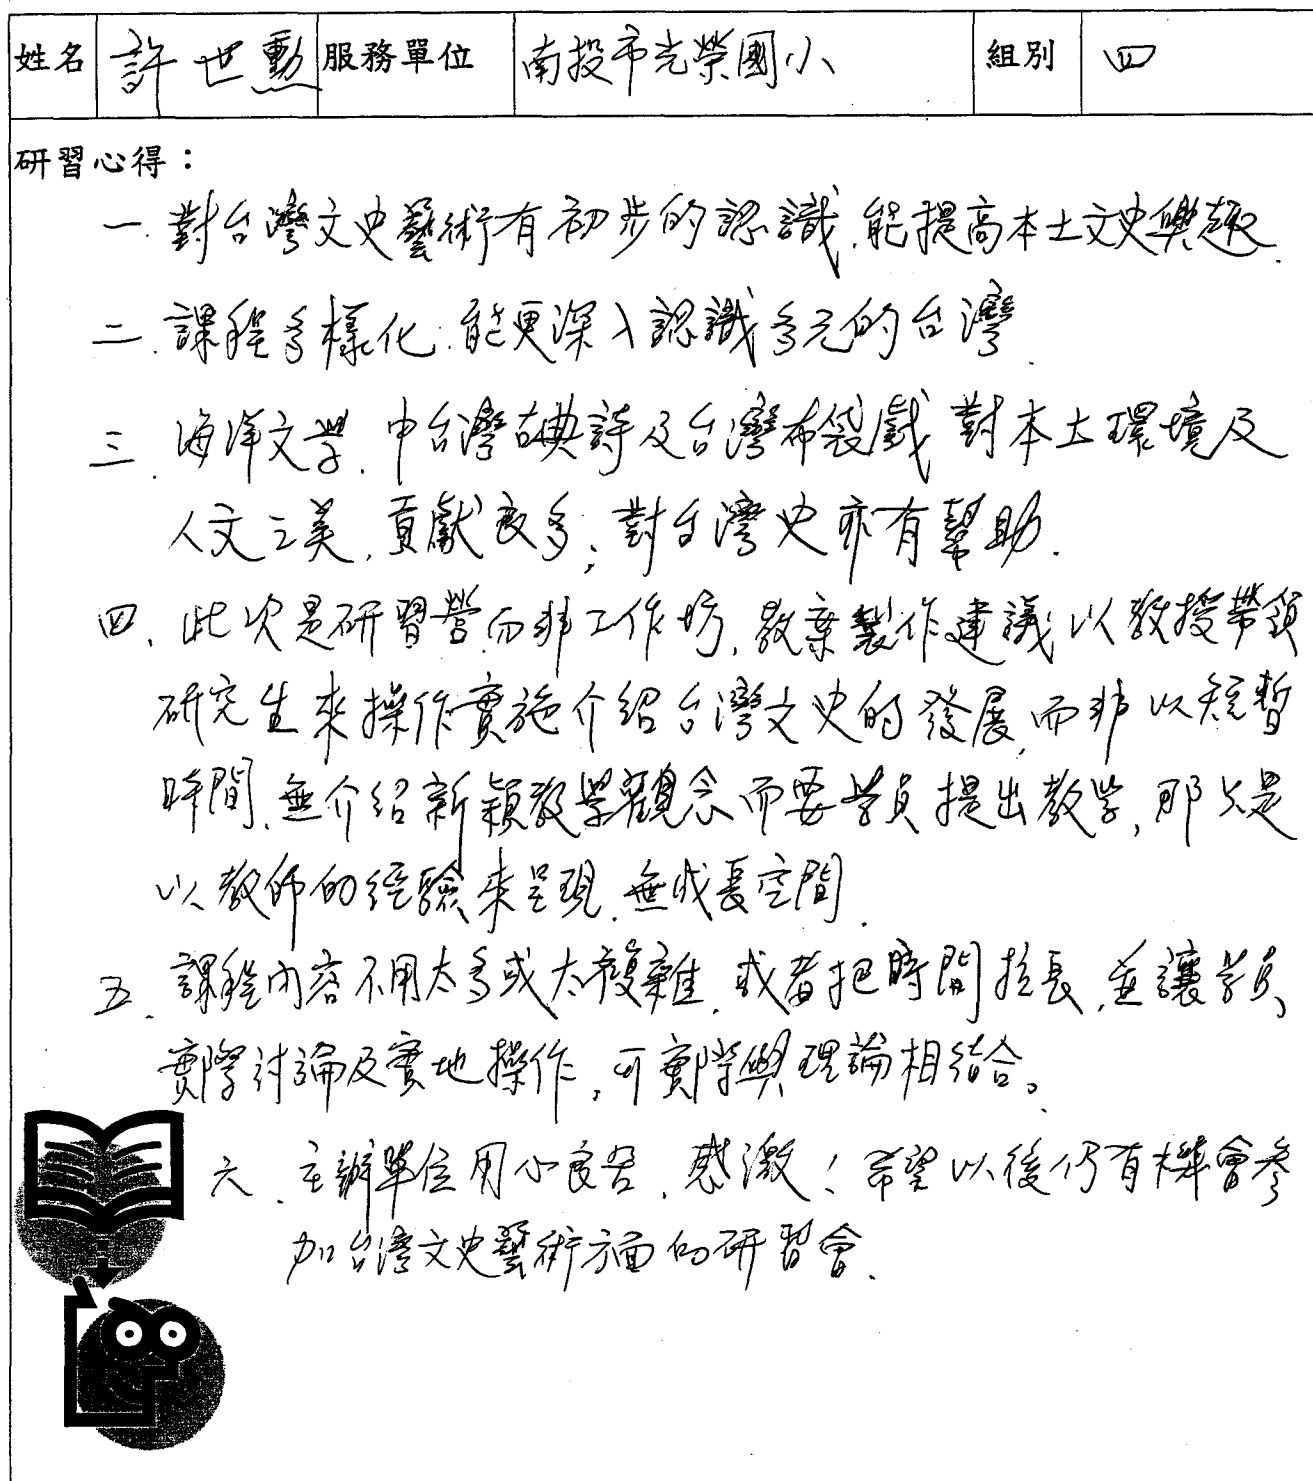 姓名 許世勳 服務單位 南投市光榮國小 組別 四
研習心得：
一.對台灣文史藝術有初步的認識.能提高本土文史興趣.
二.課程多樣化.能更深入認識多元的台灣.
三.海洋文學.中台灣古典詩及台灣布袋戲 對本土環境及
人文之美,貢獻良多;對台灣史亦有幫助.
四.此次是研習營,而非工作坊,教案製作建議以教授帶領
研究生來操作實施介紹台灣文史的發展,而非以短暫
時間,無介紹新穎教學觀念而要學員提出教學,那只是
以教師的經驗來呈現.無成長空間.
五.課程內容不用太多或太複雜.或者把時間拉長.並讓學員
實際討論及實地操作,可實際與理論相結合。
六.主辦單位用心良苦.感激!希望以後仍有機會參
加台灣文史藝術方面的研習會.